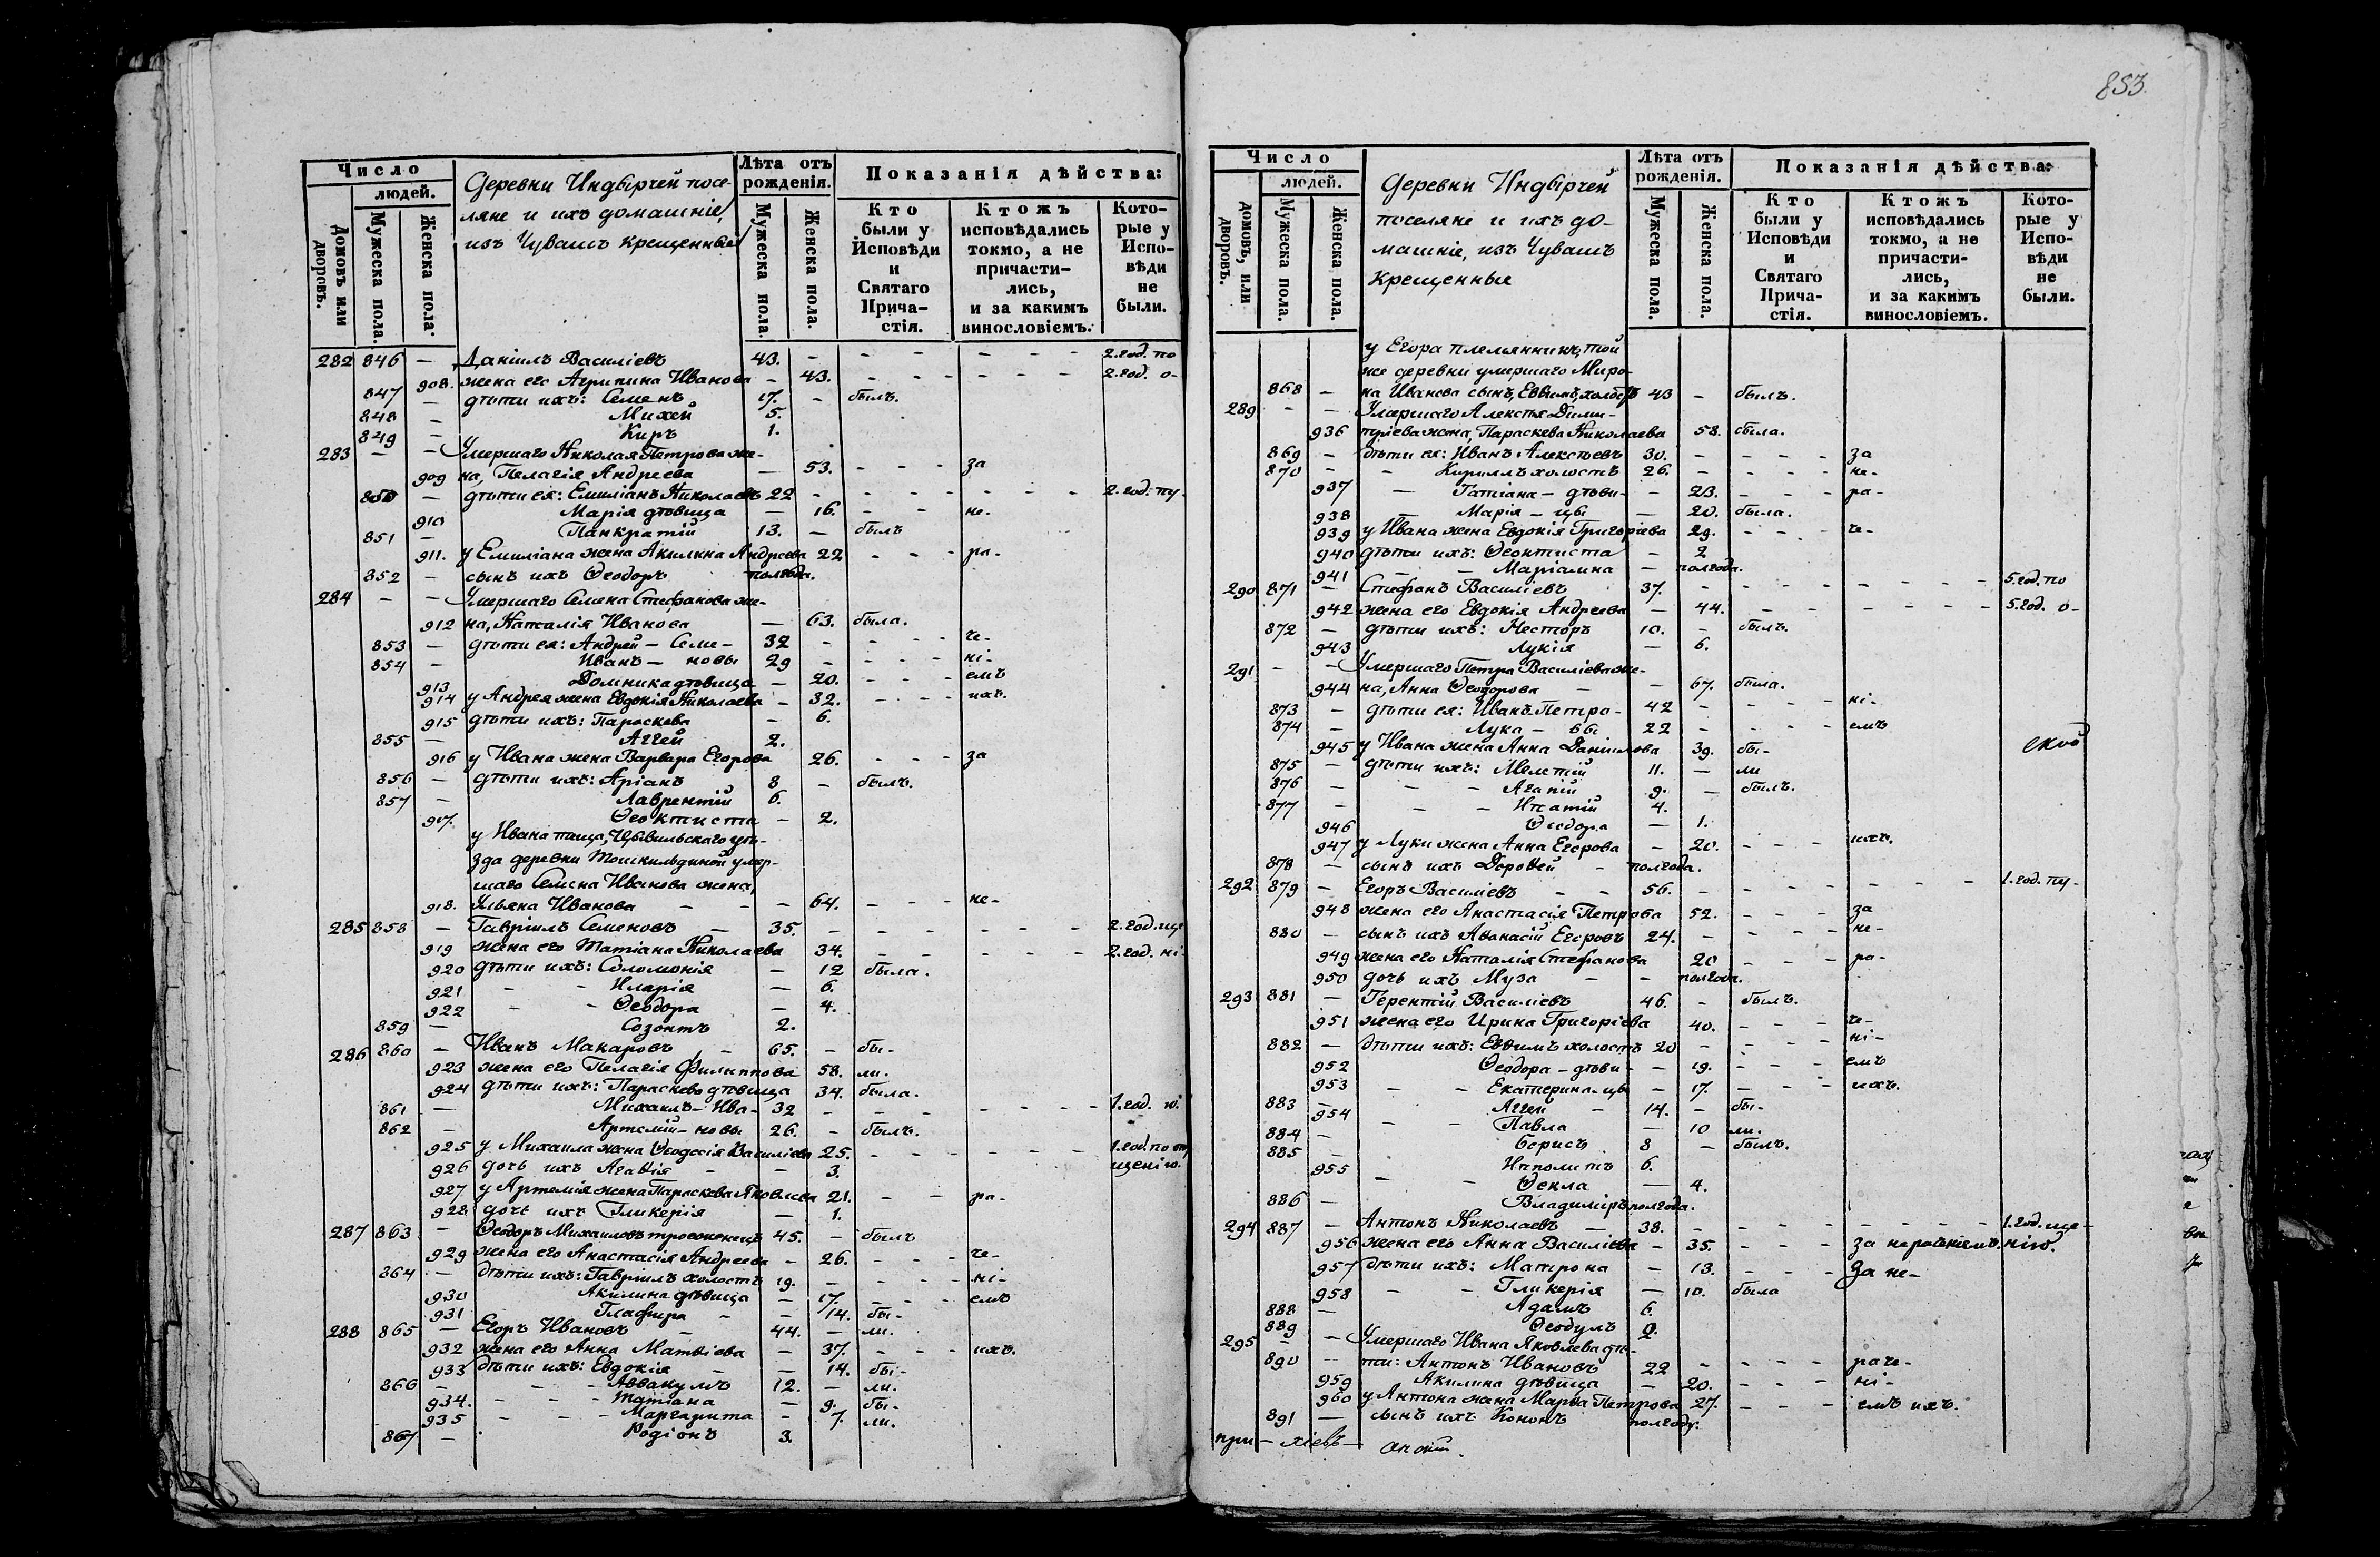 853.
Число
людей.
Домовъ или дворовъ.
Мужеска пола.
Женска пола.
Деревни Индырчей посе-
ляне и ихъ домашніе,
изъ Чувашъ крещенные
Лѣта отъ рожденія.
Мужеска пола.
Женска пола.
Показанія дѣйства:
Кто были у Исповѣди и Святаго Прича-стія.
Ктожъ исповѣдались токмо, а не причасти-лись, и за какимъ винословіемъ.
Кото-рые у Испо-вѣди не были.
282 846 — Даніилъ Василіевъ 43. - - - - - - 2. год. по
908. жена его Агрипина Иванова — 43. - - - - - 2. год. о-
847 — дѣти ихъ: Семенъ 17. - былъ.
848 — Михей 5.
849 — Киръ 1.
283 — — Умершаго Николая Петрова же-
909 на, Пелагія Андреева — 53. - - - за
850 — дѣти ея: Емиліанъ Николаевъ 22 - - - - - - 2. год. пу-
910 Марія дѣвица — 16. - - не-
851 — Панкратій 13. — былъ
911. у Емиліана жена Акилина Андреева 22 - - - ра-
852 — сынъ ихъ Ѳеодоръ полгода.
284 — — Умершаго Семена Стефанова же-
912 на, Наталія Иванова — 63. была.
853 — дѣти ея: Андрей — Семе- 32 - - - - че-
854 — Иванъ — новы 29 - - - - ні-
913 Домника дѣвица — 20. - - - емъ
914 у Андрея жена Евдокія Николаева — 32. - - - ихъ.
915 дѣти ихъ: Параскева — 6.
855 — Аггей 2.
916 у Ивана жена Варвара Егорова 26. - - - за
856 — дѣти ихъ: Аріанъ 8 - былъ.
857 — Лаврентій 6.
917. Ѳеоктиста — 2.
у Ивана теща, Цывильскаго уѣ-
зда деревни Тошкильдиной умер-
шаго Семена Иванова жена,
918. Ульяна Иванова — — — 64. - - - не-
285 858 — Гавріилъ Семеновъ — 35. - - - - - - 2. год. ще
919 жена его Татіана Николаева 34. - - - - - 2. год. ні-
920 дѣти ихъ: Соломонія — 12 была.
921 - - Иларія — 6.
922 - - Ѳеодора — 4.
859 — Созонтъ 2.
286 860 — Иванъ Макаровъ - 65. - бы-
923 жена его Пелагія Филиппова 58. ли.
924 дѣти ихъ: Параскева дѣвица 34. была.
861 — Михаилъ — Ива- 32 - - - - - - 1. год. ю.
862 — Артемій — новы 26. - былъ.
925 у Михаила жена Ѳеодосія Василіева 25. - - - - - 1. год. по оп
926 дочь ихъ Агаѳія — — 3. щенію.
927 у Артемія жена Параскева Яковлева 21. - - ра-
928 дочь ихъ Гликерія — 1.
287 863 — Ѳеодоръ Михаиловъ троеженецъ 45. - былъ
929 жена его Анастасія Андреева — 26. - - - че-
864 — дѣти ихъ: Гавріилъ холостъ 19. - - - - ні-
930 Акилина дѣвица — 17. - - - емъ
931 Глафира — — 14. бы-
288 865 — Егоръ Ивановъ — 44. — ли.
932 жена его Анна Матвіева — 37. - - - ихъ.
933 дѣти ихъ: Евдокія — — 14. бы-
866 — - - Аввакумъ 12. — ли.
934. - - - Татіана — 9. бы-
935 - - - Маргарита - 7. ли.
867 — Родіонъ 3.
Число
людей.
Домовъ, или дворовъ.
Мужеска пола.
Женска пола.
Деревни Индырчей
поселяне и ихъ до-
машніе, изъ Чувашъ
крещенные
Лѣта отъ рожденія.
Мужеска пола.
Женска пола.
Показанія дѣйства:
Кто были у Исповѣди и Святаго Прича-стія.
Ктожъ исповѣдались токмо, а не причасти-лись, и за какимъ винословіемъ.
Кото-рые у Испо-вѣди не были.
у Егора племянникъ, той
же деревни умершаго Миро-
868 — на Иванова сынъ, Евѳимъ, холостъ 43 - былъ.
289 - — Умершаго Алексѣя Дими-
936 тріева жена, Параскева Николаева 58. была.
869 — дѣти ея: Иванъ Алексѣевъ 30. - - - - за
870 — - Кириллъ холостъ 26. - - - - не-
937 — Татіана — дѣви- — 23. - - - ра-
938 — Марія — цы — 20. была.
939 у Ивана жена Евдокія Григоріева 29. - - - че-
940 дѣти ихъ: Ѳеоктиста — 2
941 - - Маріамна — полгода.
290 871 — Стефанъ Василіевъ 37. - - - - - - 5. год. по
942 жена его Евдокія Андреева — 44. - - - - - - 5. год. о-
872 — дѣти ихъ: Несторъ 10. - былъ.
943 Лукія — 6.
291 - — Умершаго Петра Василіева же-
944 на, Анна Ѳеодорова — — 67. была.
873 — дѣти ея: Иванъ Петро- 42 - - - - ні-
874 — Лука — вы 22 - - - - емъ
945 у Ивана жена Анна Даніилова 39. бы-
875 — дѣти ихъ: Мелетій 11. — ли
876 — - - Агапій 9. — былъ.
877 — - - Ипатій 4.
946 Ѳеодора — 1.
947 у Луки жена Анна Егорова — 20. - - - ихъ.
878 — сынъ ихъ Дороѳей — полгода.
292 879 — Егоръ Василіевъ - - 56. - - - - - - 1. год. пу-
948 жена его Анастасія Петрова 52. - - - за
880 — сынъ ихъ Аѳанасій Егоровъ 24. - - - - не-
949 жена его Наталія Стефанова 20 - - - ра-
950 дочь ихъ Муза — — полгода.
293 881 — Терентій Василіевъ 46. - былъ.
951 жена его Ирина Григоріева 40. - - - че-
882 — дѣти ихъ: Евѳимъ холостъ 20 - - - - ні-
952 Ѳеодора — дѣви- — 19. - - - емъ
953 - - Екатерина — цы — 17. - - - ихъ.
883 — Аггей — 14. - бы-
954 - - Павла — 10 ли.
884 — Борисъ 8 — былъ.
885 — Ипполитъ 6.
955 - - Ѳекла — 4.
886 — Владиміръ полгода.
294 887 — Антонъ Николаевъ — 38. - - - - - - 1. год. ще-
956 жена его Анна Василіева — 35. - - - за нераченіемъ. нію.
957 дѣти ихъ: Матрона — 13. - - - За не-
958 - - Гликерія — 10. была
888 — Адамъ 6.
889 Ѳеодулъ 2.
295 - — Умершаго Ивана Яковлева дѣ-
890 — ти: Антонъ Ивановъ 22 - - - - раче-
959 Акилина дѣвица — 20. - - - ні-
960 у Антона жена Марѳа Петрова 27. - - - емъ ихъ.
891 — сынъ ихъ Кононъ полгоду.